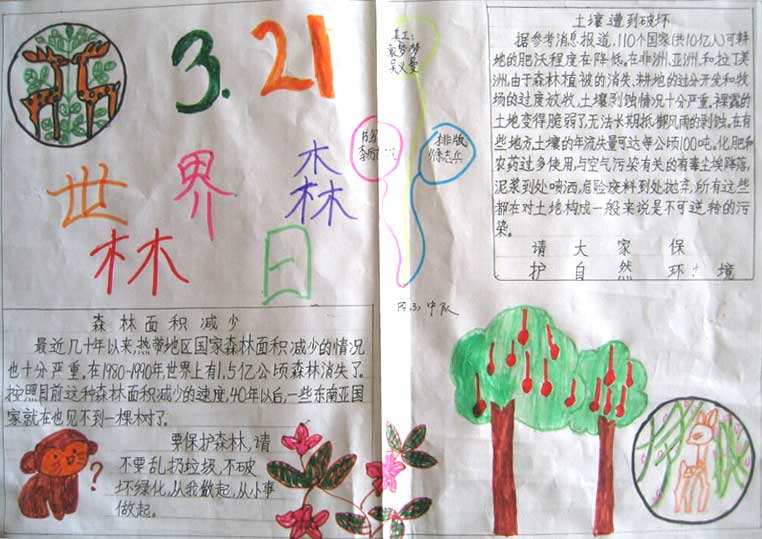 3.21
世界森
林日
美工:
森林面积减少
最近几十年以来,热带地区国家森林面积减少的情况
也十分严重,在1980-1990年世界上有1.5亿公顷森林消失了
按照目前这种森林面积减少的速度,40年以后,一些东南亚国
家就在也见不到一棵树了。
要保护森林,请
不要乱扔垃圾,不破
坏绿化,从我做起,从小事
做起。
排版
土壤遭到破坏
据参考消息报道,110个国家(共10亿人)可耕
地的肥沃程度在降低。在非洲、亚洲、和拉丁美
洲,由于森林植被的消失、耕地的过分开发和牧
场的过度放牧,土壤剥蚀情况十分严重。裸露的
土地变得脆弱了,无法长期抵御风雨的剥蚀。在有
些地方,土壤的年流失量可达每公顷100吨。化肥和
农药过多使用,与空气污染有关的有毒尘埃降落,
泥浆到处喷洒,危险废料到处抛弃,所有这些
都在对土地构成一般来说是不可逆转的污
染。
请大家保
护自然环境
中队